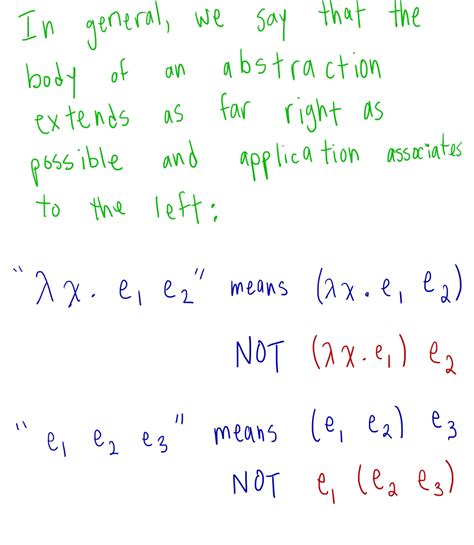 In general, we say that the
body of an abstraction
extends as far right as
possible and application associates
to the left:
"λx. e₁ e₂" means (λx.e₁ e₂)
NOT (λx.e₁) e₂
"e₁ e₂ e₃" means (e₁ e₂) e₃
NOT e₁ (e₂ e₃)